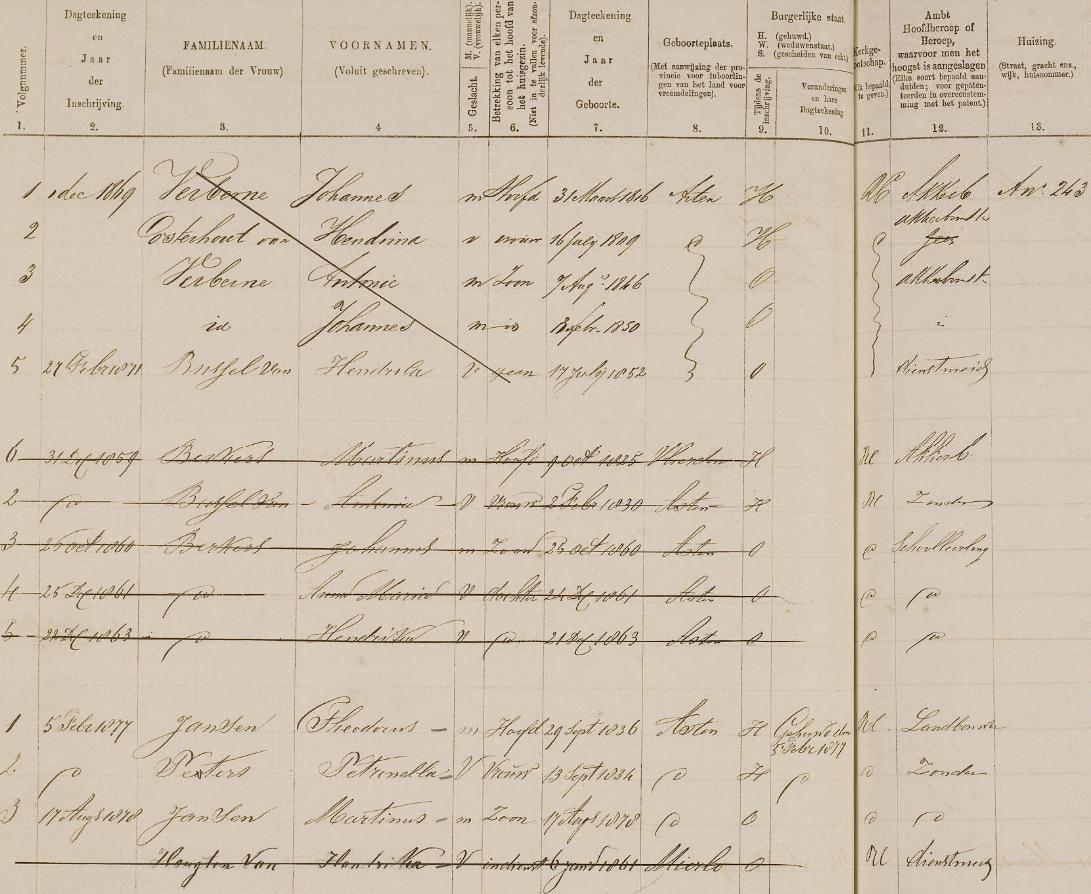 Volgnummer. Dagteekening en Jaar der Inschrijving. FAMILIENAAM. (Familienaam der Vrouw). VOORNAMEN. (Voluit geschreven). Geslacht. M. (mannelijk). V. (vrouwelijk). Betrekking van elken persoon tot het hoofd van het huisgezin. (Niet in te vullen voor afzonderlijk levende). Dagteekening en Jaar der Geboorte. Geboorteplaats. (Met aanwijzing der provincie voor inboorlingen van het land voor vreemdelingen). Burgerlijke staat. H. (gehuwd). W. (weduwenstaat). S. (gescheiden van echt) Tijdens de inschrijving. Veranderingen en hare Dagteekening Ambt Hoofdberoep of Beroep, waarvoor men het hoogst is aangeslagen (Elke soort bepaald aanduiden; voor gepatenteerden in overeenstemming met het patent.) Huizing. (Straat, gracht enz., wijk, huisnommer.)
1. 2. 3. 4 5. 6. 7. 8. 9. 10. 11. 12. 13.
1 1 dec 1869 Verberne Johannes m Hoofd 31 Maart 1816 Asten H RC Akkerb An⁰. 243
2 Oosterhout van Hendrina v vrouw 16 july 1809 " H akkerbouwster
3 Verberne Antonie m Zoon 7 Aug. 1846 O
4 id Johannes m id febr. 1850 O
5 27 Febr 1871 Bussel Van Hendrika V geen 17 July 1852 O dienstmeid
6 31 Dec 1859 Berkers Martinus m Hoofd 9 Oct 1825 Vlierden H RC Akkerb
2 " Bussel Van Antonia V Vrouw 2 Febr 1830 Asten H RC Zonder
3 26 Oct 1860 Berkers Johannes m Zoon 25 Oct 1860 Asten O " Schoolleerling
4 25 Dec 1861 " Anna Maria V dochter 24 Dec 1861 Asten O " "
5 22 Dec 1863 " Hendrika V " 21 Dec 1863 Asten O " "
1 5 Febr 1877 Jansen Theodorus m Hoofd 29 Sept 1836 Asten H Gehuwd den RC Landbouwer
5 Febr 1877
2. " Peeters Petronella V Vrouw 13 Sept 1834 " H " " Zonder
3 17 Aug 1878 Jansen Martinus m Zoon 17 Aug 1878 " O " "
Hoogten Van Hendrika V indienst 6 janri 1861 Mierlo O RC dienstmeid